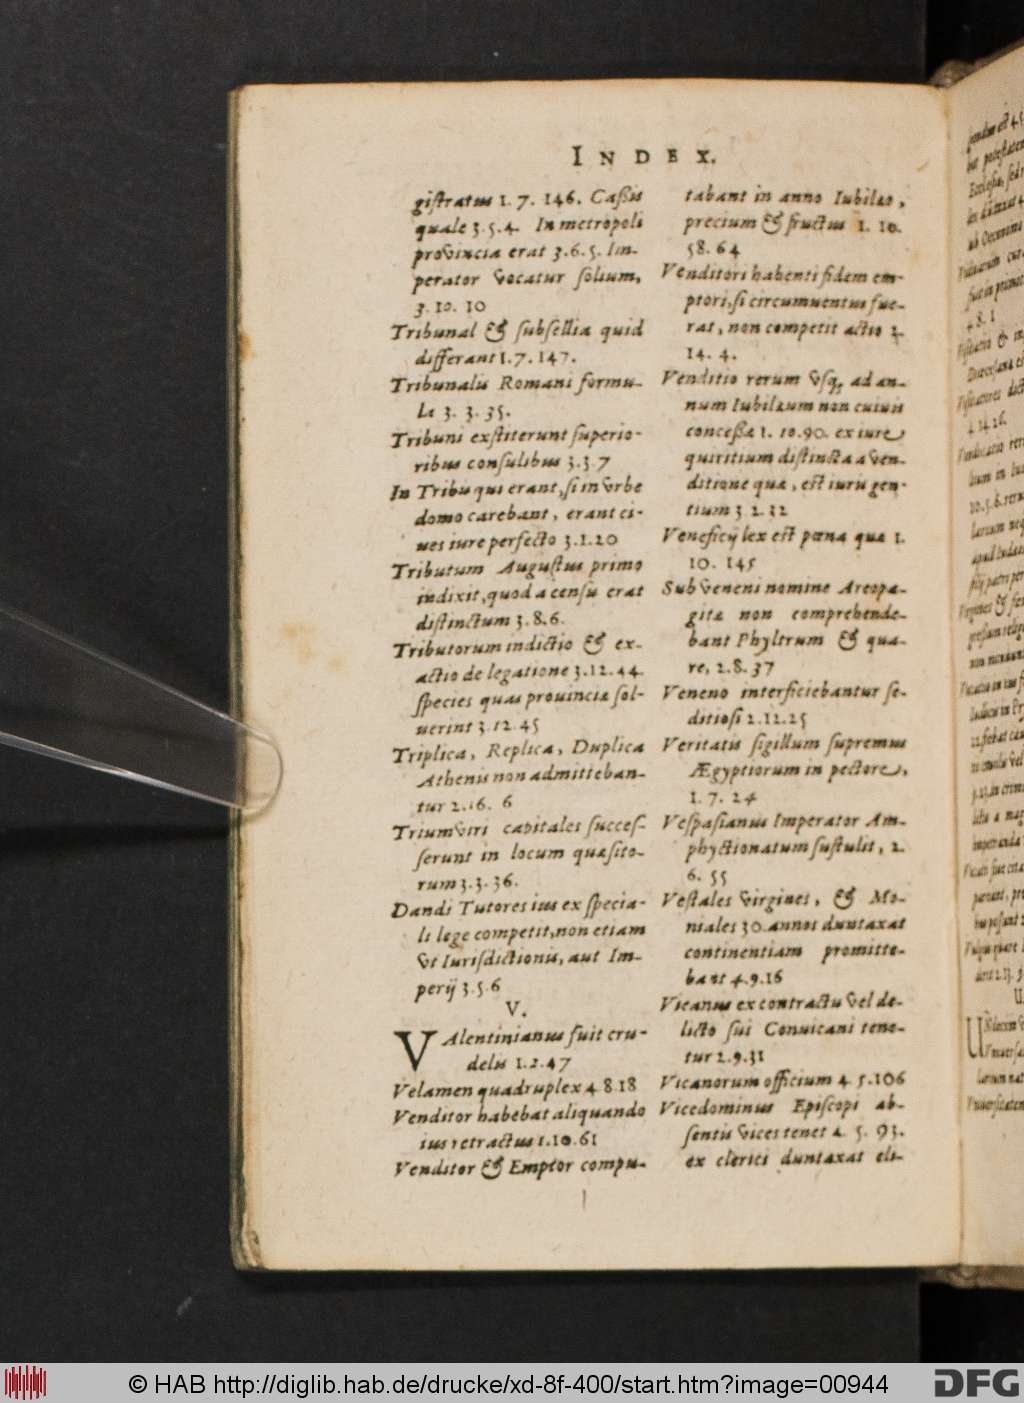 INDEX.
giſtratus 1. 7. 146. Caßis
quale 3.5.4. In metropoli
provincia erat 3.6.5. Im-
perator vocatur ſolium,
3. 10. 10
Tribunal & ſubſellia quid
differant 1.7.147.
Tribunalis Romani formu-
læ 3. 3. 35.
Tribuni exſtiterunt ſuperio-
ribus conſulibus 3.3.7
In Tribu qui erant, ſi in vrbe
domo carebant, erant ci-
ues iure perfecto 3.1.20
Tributum Auguſtus primo
indixit, quod a cenſu erat
diſtinctum 3.8.6.
Tributorum indictio & ex-
actio de legatione 3.12.44.
ſpecies quas prouinciæ ſol-
uerint 3.12.45
Triplica, Replica, Duplica
Athenis non admitteban-
tur 2.16. 6
Triumviri capitales ſucceſ-
ſerunt in locum quæſito-
rum 3.3.36.
Dandi Tutores ius ex ſpecia-
li lege competit, non etiam
vt Iurisdictionis, aut Im-
perij 3.5.6
V.
VAlentinianus fuit cru-
delis 1.2.47
Velamen quadruplex 4 8.18
Venditor habebat aliquando
ius retractus 1.10.61
Venditor & Emptor compu-
tabant in anno Iubilæo,
precium & fructus 1. 10.
58. 64
Venditori habenti fidem em-
ptori, ſi circumuentus fue-
rat, non competit actio 2.
14. 4.
Venditio rerum vſq; ad an-
num Iubilæum non cuiuis
conceßa 1. 10.90. ex iure
quiritium diſtincta a ven-
ditione quæ, eſt iuris gen-
tium 3.2.32
Veneficij lex eſt pœna quæ 1.
10. 145
Sub veneni nomine Areopa-
gitæ non comprehende-
bant Phyltrum & qua-
re, 2.8.37
Veneno interficiebantur ſe-
ditioſi 2.12.25
Veritatis ſigillum ſupremus
Ægyptiorum in pectore,
1. 7. 24
Veſpaſianus Imperator Am-
phyctionatum ſuſtulit, 2.
6. 55
Veſtales virgines, & Mo-
niales 30. annos duntaxat
continentiam promitte-
bant 4.9.16
Vicanus ex contractu vel de-
licto ſui Conuicani tene-
tur 2.9.31
Vicanorum officium 4. 5.106
Vicedominus Epiſcopi ab-
ſentis vices tenet 4. 5. 93.
ex clerici duntaxat eli-
© HAB http://diglib.hab.de/drucke/xd-8f-400/start.htm?image=00944
DFG